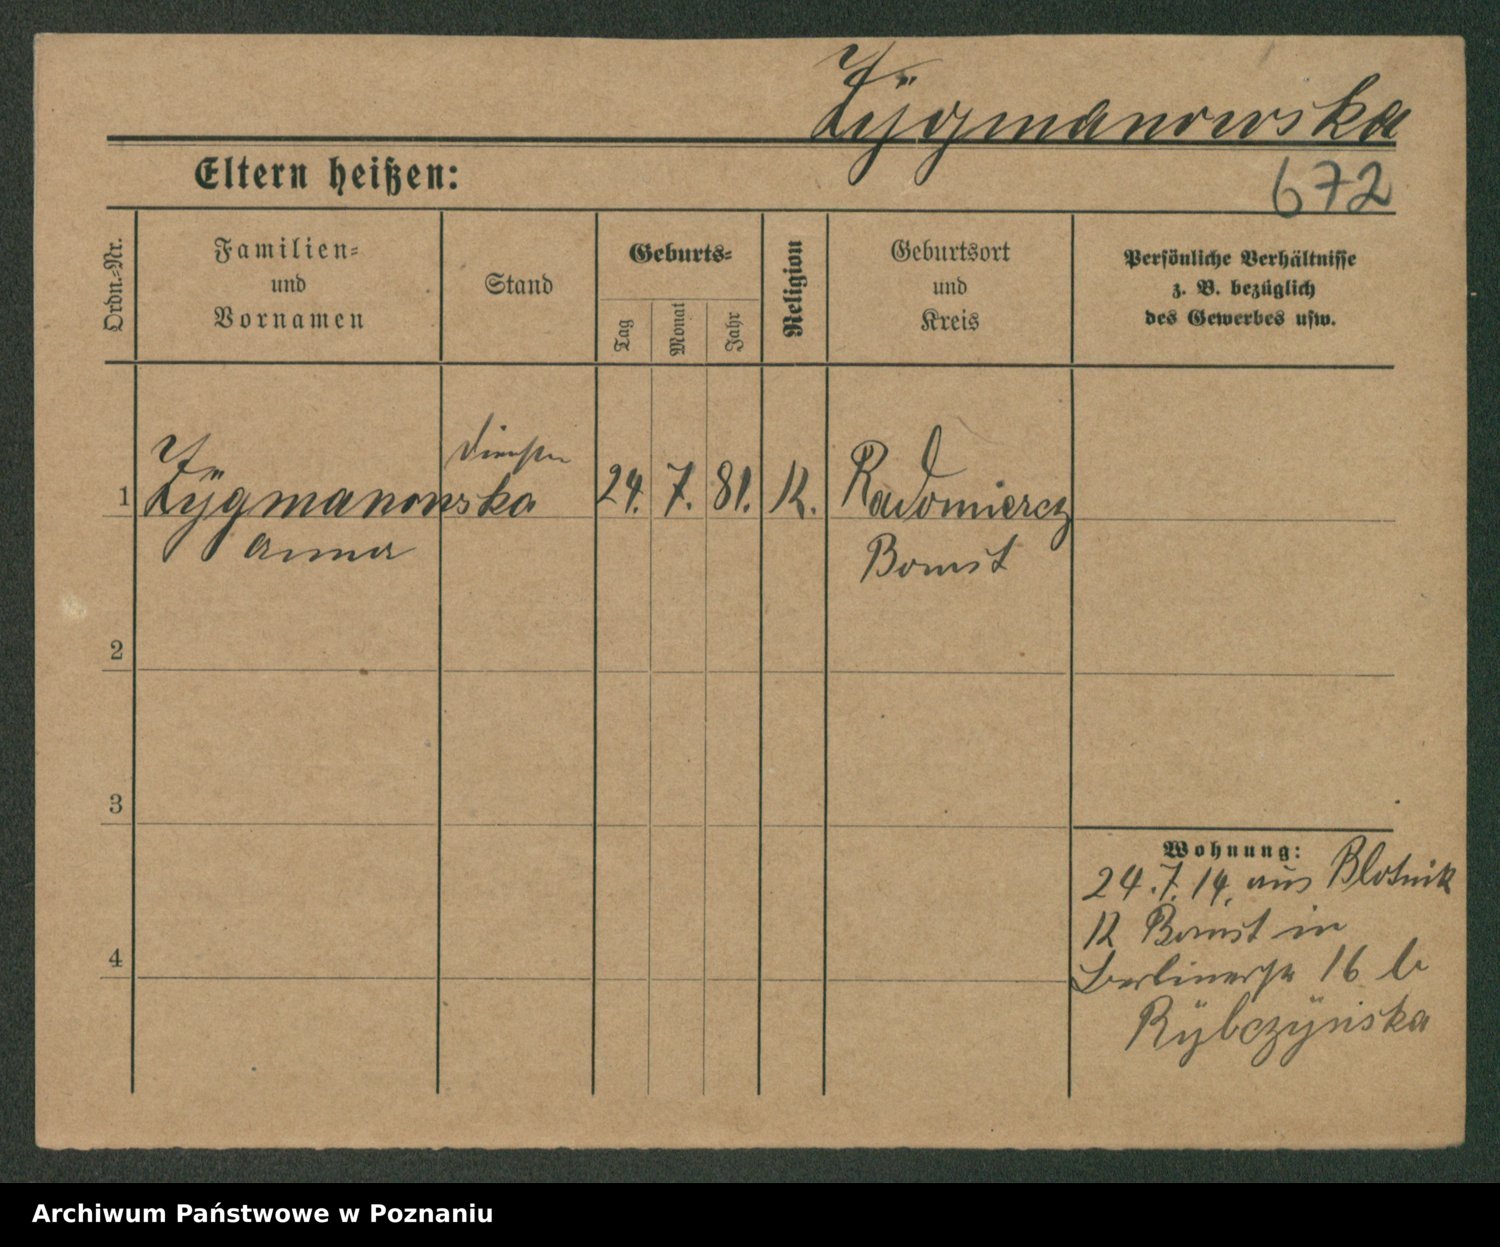 Zÿgmanowska
Eltern heißen:
672
Ordn.=Nr.
Familien=
und
Vornamen
Stand
Geburts=
Tag
Monat
Jahr
Religion
Geburtsort
und
Kreis
Persönliche Verhältnisse
z. B. bezüglich
des Gewerbes usw.
1 Zÿgmanowska 24. 7. 81. K. Radomiercz
Anna Bomst
2
3
4
Wohnung:
24.7.14. aus Blotnik
K Bomst in
Berlinerstr 16 b
Rÿbczÿnska
Archiwum Państwowe w Poznaniu